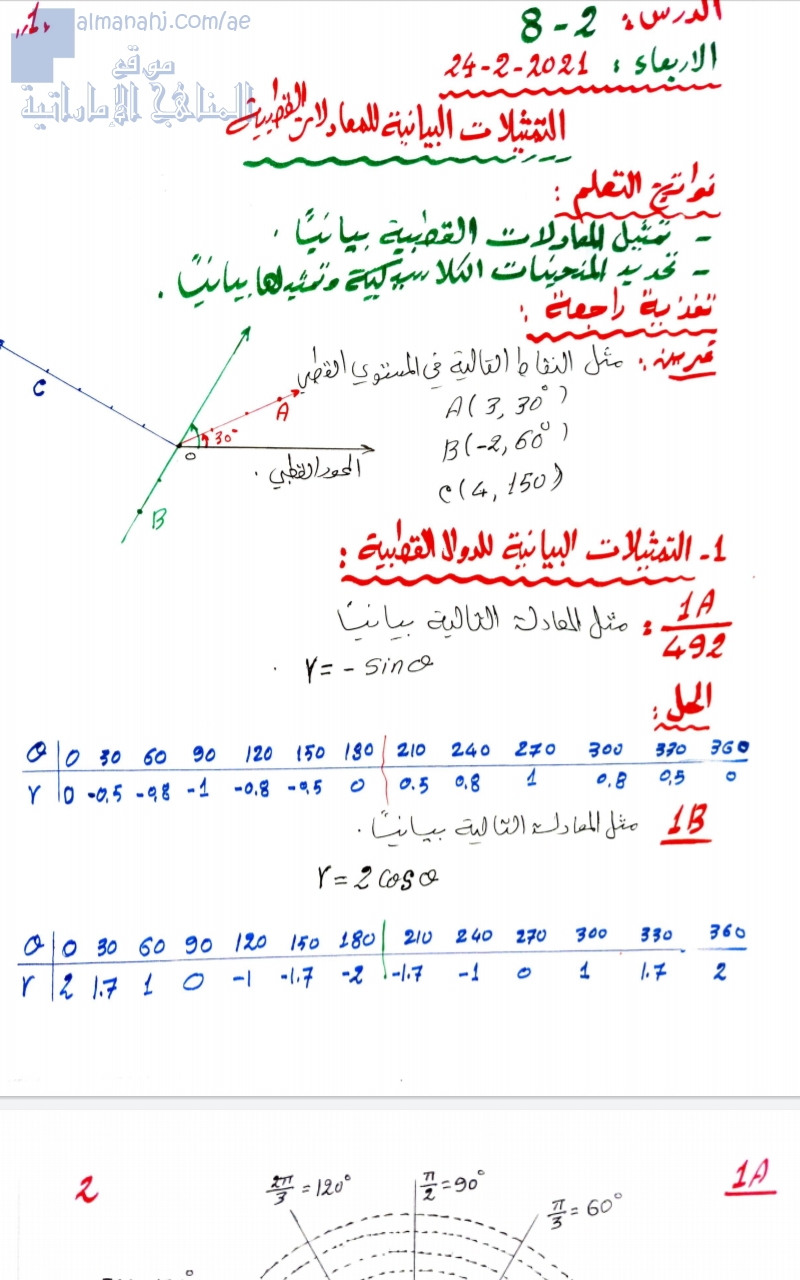 1.
almanahj.com/ae
موقع
المناهج الإماراتية
الدرس: 2-8
الاربعاء: 24-2-2021
التمثيلات البيانية للمعادلات القطبية
نواتج التعلم:
- تمثيل المعادلات القطبية بيانيًا.
- تحديد المنحنيات الكلاسيكية وتمثيلها بيانيًا.
تغذية راجعة:
تمرين: مثل النقاط التالية في المستوى القطبي
A(3, 30°)
B(-2, 60°)
C(4, 150)
C
A
30°
O
المحور القطبي.
B
1- التمثيلات البيانية للدوال القطبية:
1A/492: مثل المعادلة التالية بيانيًا
r = - sin θ
الحل:
θ | 0 30 60 90 120 150 180 210 240 270 300 330 360
r | 0 -0,5 -0,8 -1 -0.8 -0,5 0 0.5 0.8 1 0.8 0,5 0
1B مثل المعادلة التالية بيانيًا.
r = 2 cos θ
θ | 0 30 60 90 120 150 180 210 240 270 300 330 360
r | 2 1.7 1 0 -1 -1.7 -2 -1.7 -1 0 1 1.7 2
2
2π/3 = 120°
π/2 = 90°
π/3 = 60°
1A